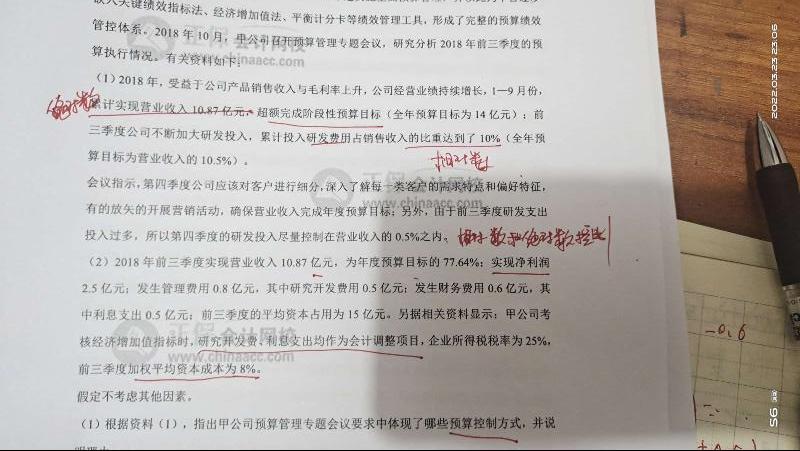 嵌入关键绩效指标法、经济增加值法、平衡计分卡等绩效管理工具，形成了完整的预算绩效
管控体系。2018年10月，甲公司召开预算管理专题会议，研究分析2018年前三季度的预
算执行情况。有关资料如下：
（1）2018年，受益于公司产品销售收入与毛利率上升，公司经营业绩持续增长，1—9月份，
绝对数
累计实现营业收入10.87亿元，超额完成阶段性预算目标（全年预算目标为14亿元）；前
三季度公司不断加大研发投入，累计投入研发费用占销售收入的比重达到了10%（全年预
算目标为营业收入的10.5%）。
相对数
会议指示，第四季度公司应该对客户进行细分，深入了解每一类客户的需求特点和偏好特征，
有的放矢的开展营销活动，确保营业收入完成年度预算目标；另外，由于前三季度研发支出
投入过多，所以第四季度的研发投入尽量控制在营业收入的0.5%之内。
相对数和绝对数控制
（2）2018年前三季度实现营业收入10.87亿元，为年度预算目标的77.64%；实现净利润
2.5亿元；发生管理费用0.8亿元，其中研究开发费用0.5亿元；发生财务费用0.6亿元，其
中利息支出0.5亿元；前三季度的平均资本占用为15亿元。另据相关资料显示：甲公司考
核经济增加值指标时，研究开发费、利息支出均作为会计调整项目，企业所得税税率为25%，
前三季度加权平均资本成本为8%。
假定不考虑其他因素。
（1）根据资料（1），指出甲公司预算管理专题会议要求中体现了哪些预算控制方式，并说
明理由
正保会计网校
www.chinaacc.com
正保会计网校
www.chinaacc.com
正保会计网校
www.chinaacc.com
2022.03.23 23:06
-0.6